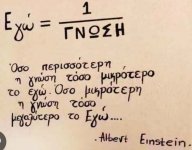 Εγώ = 1 / ΓΝΩΣΗ
Όσο περισσότερη
η γνώση τόσο μικρότερο
το εγώ. Όσο μικρότερη
η γνώση τόσο
μεγαλύτερο το Εγώ....
Albert Einstein.